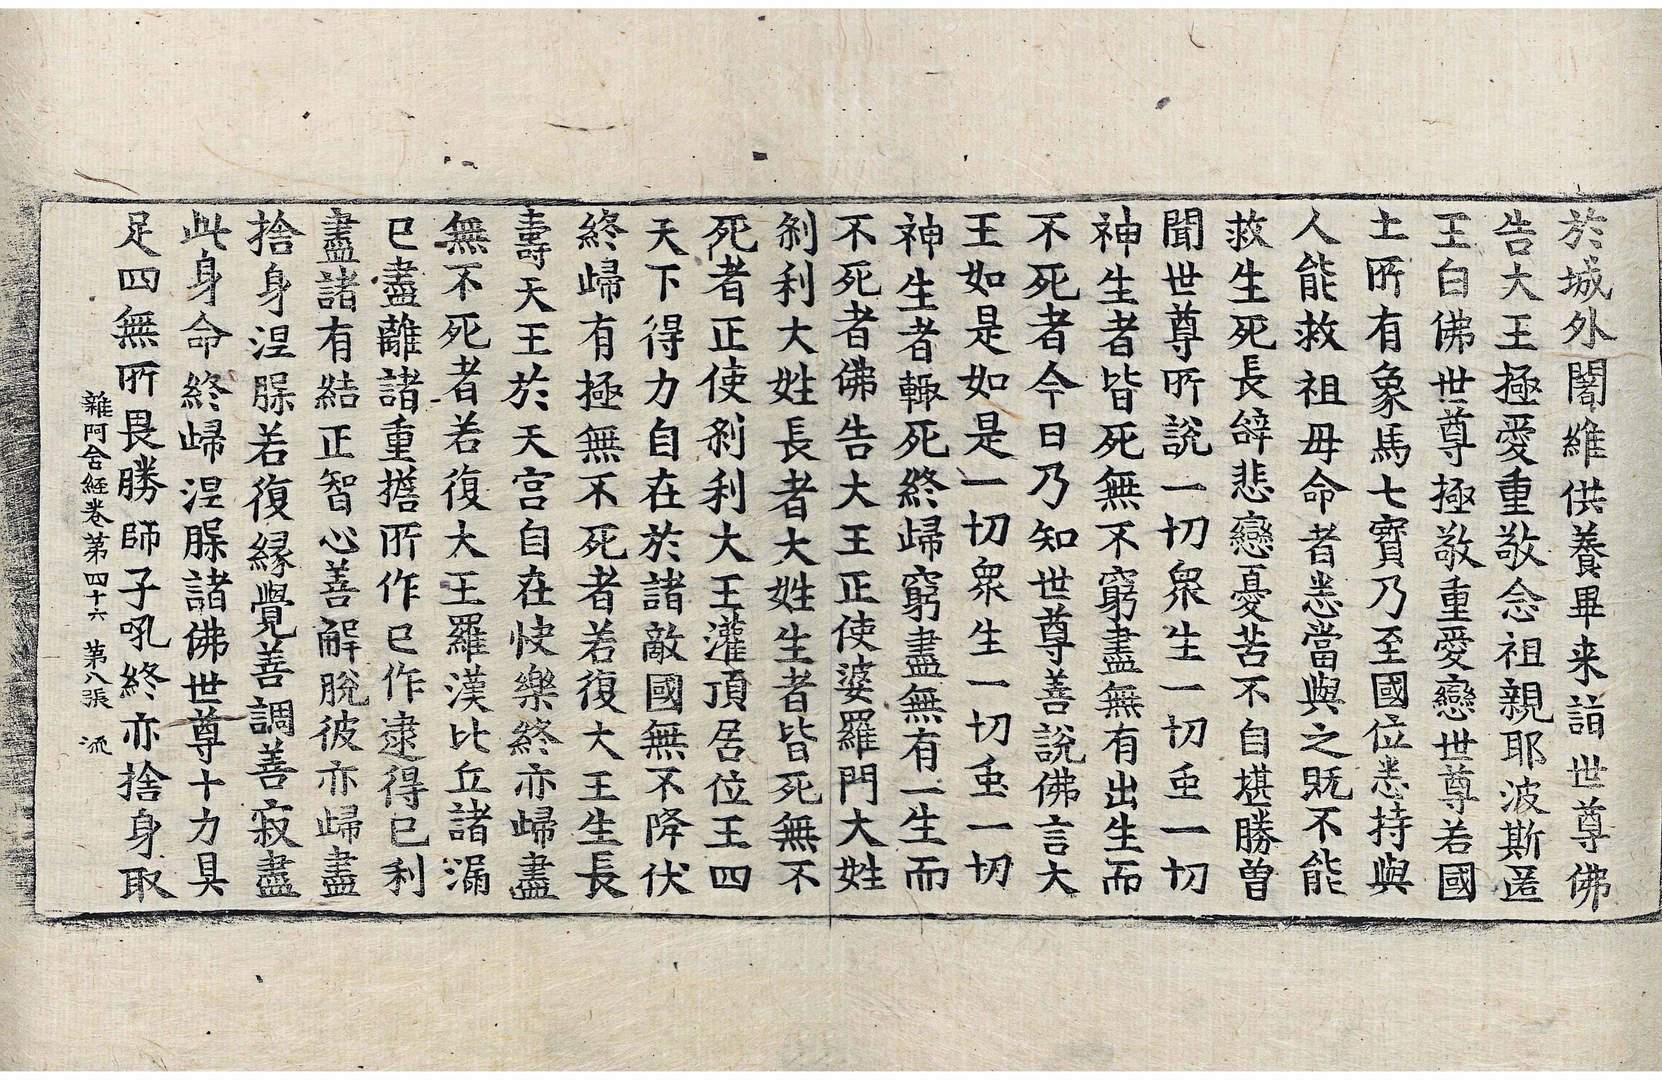 於城外闍維供養畢来詣世尊佛
告大王極愛重敬念祖親耶波斯匿
王白佛世尊極敬重愛戀世尊若國
土所有象馬七寶乃至國位悉持與
人能救祖母命者悉當與之既不能
救生死長辝悲戀憂苦不自堪勝曽
聞世尊所說一切衆生一切虫一切
神生者皆死無不窮盡無有出生而
不死者今日乃知世尊善說佛言大
王如是如是一切衆生一切虫一切
神生者輙死終歸窮盡無有一生而
不死者佛告大王正使婆羅門大姓
刹利大姓長者大姓生者皆死無不
死者正使刹利大王灌頂居位王四
天下得力自在於諸敵國無不降伏
終歸有極無不死者若復大王生長
壽天王於天宫自在快樂終亦歸盡
無不死者若復大王羅漢比丘諸漏
已盡離諸重擔所作已作逮得已利
盡諸有結正智心善解脫彼亦歸盡
捨身涅槃若復緣覺善調善寂盡
此身命終歸涅槃諸佛世尊十力具
足四無所畏勝師子吼終亦捨身取
雜阿含經卷第四十六 第八張 流